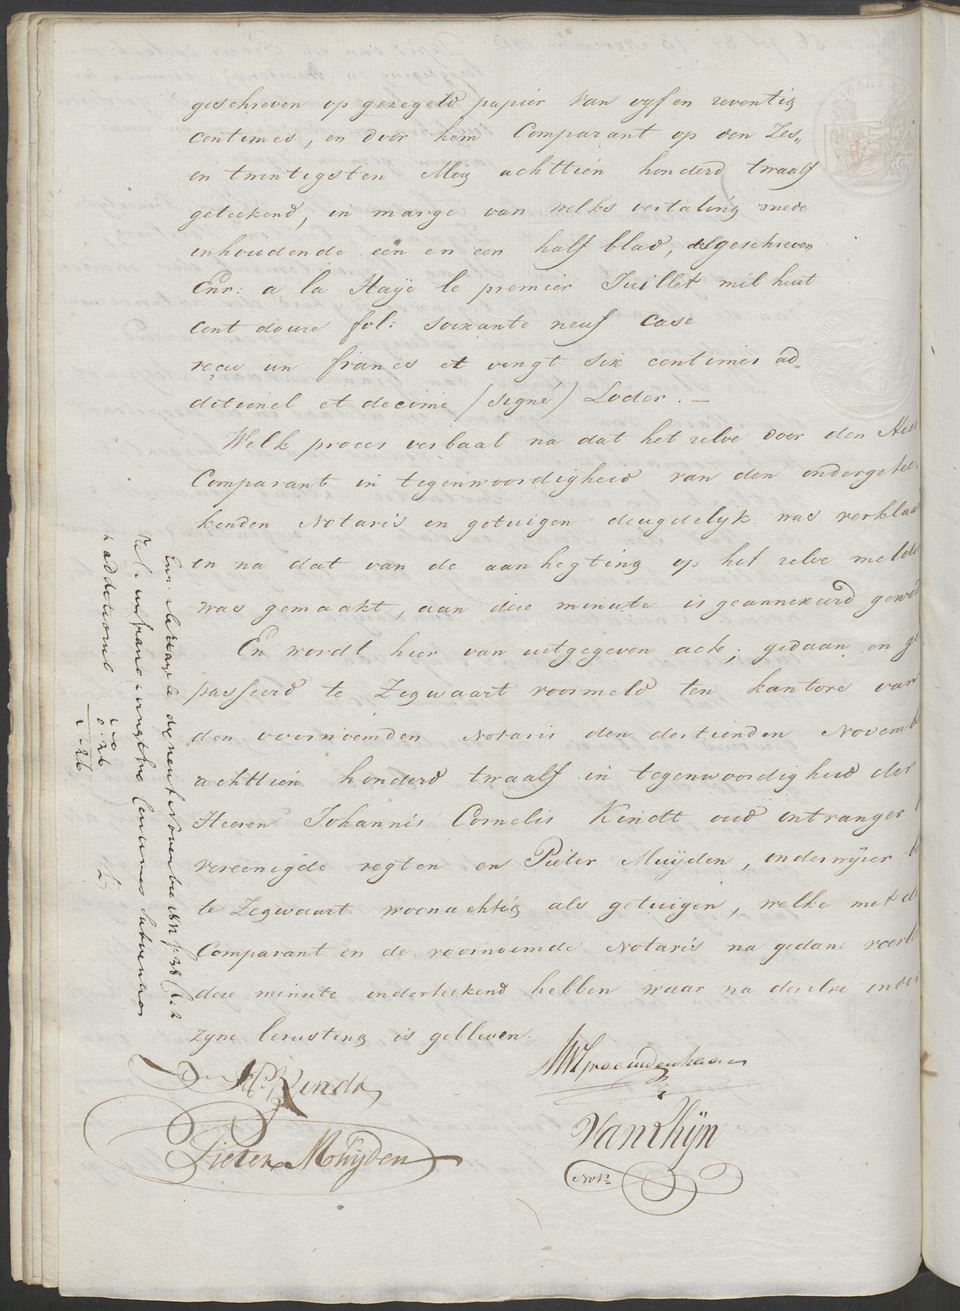 geschreven op gezegeld papier van vyf en zeventig
centimes, en door hem Comparant op den Zes„
en twintigsten Mey achttien honderd twaalf
geteekend, in marge van welks vertaling mede
inhoudende een en een half blad, is geschreven
Enr: a la Haÿe le premier Juillet mil huit
cent douze fol: soixante neuf case
reçu un francs et vingt six centimes ad„
ditionel et decime /signé/ Loder. —
Welk proces verbaal na dat het zelve door den Heer
Comparant in tegenwoordigheid van den ondergetee„
kenden Notaris en getuigen deugdelyk was verklaa
en na dat van de aanhegting op het zelve meld
was gemaakt, aan deze minute is geannexeerd gewo
En wordt hier van uitgegeven acte; gedaan en ge
passeerd te Zegwaart voormeld ten kantore van
den voornoemden Notaris den dertienden Novemb
achttien honderd twaalf in tegenwoordigheid der
Heeren Johannis Cornelis Kindt oud ontvanger
vereenigde regten en Pieter Muÿden, onderwyzer
te Zegwaart woonachtig als getuigen, welke met d
Comparant en de voornoemde Notaris na gedane voorle
deze minute onderteekend hebben waar na dezelve onder
zyne berusting is gebleven.
Enr. a la Haye le dix neuf Novembre 1812 f. 38
un franc vingt six centimes
additionel
0.26
1.26
J.C. Kindt
Pieter Muÿden
Van Rhÿn
Nots